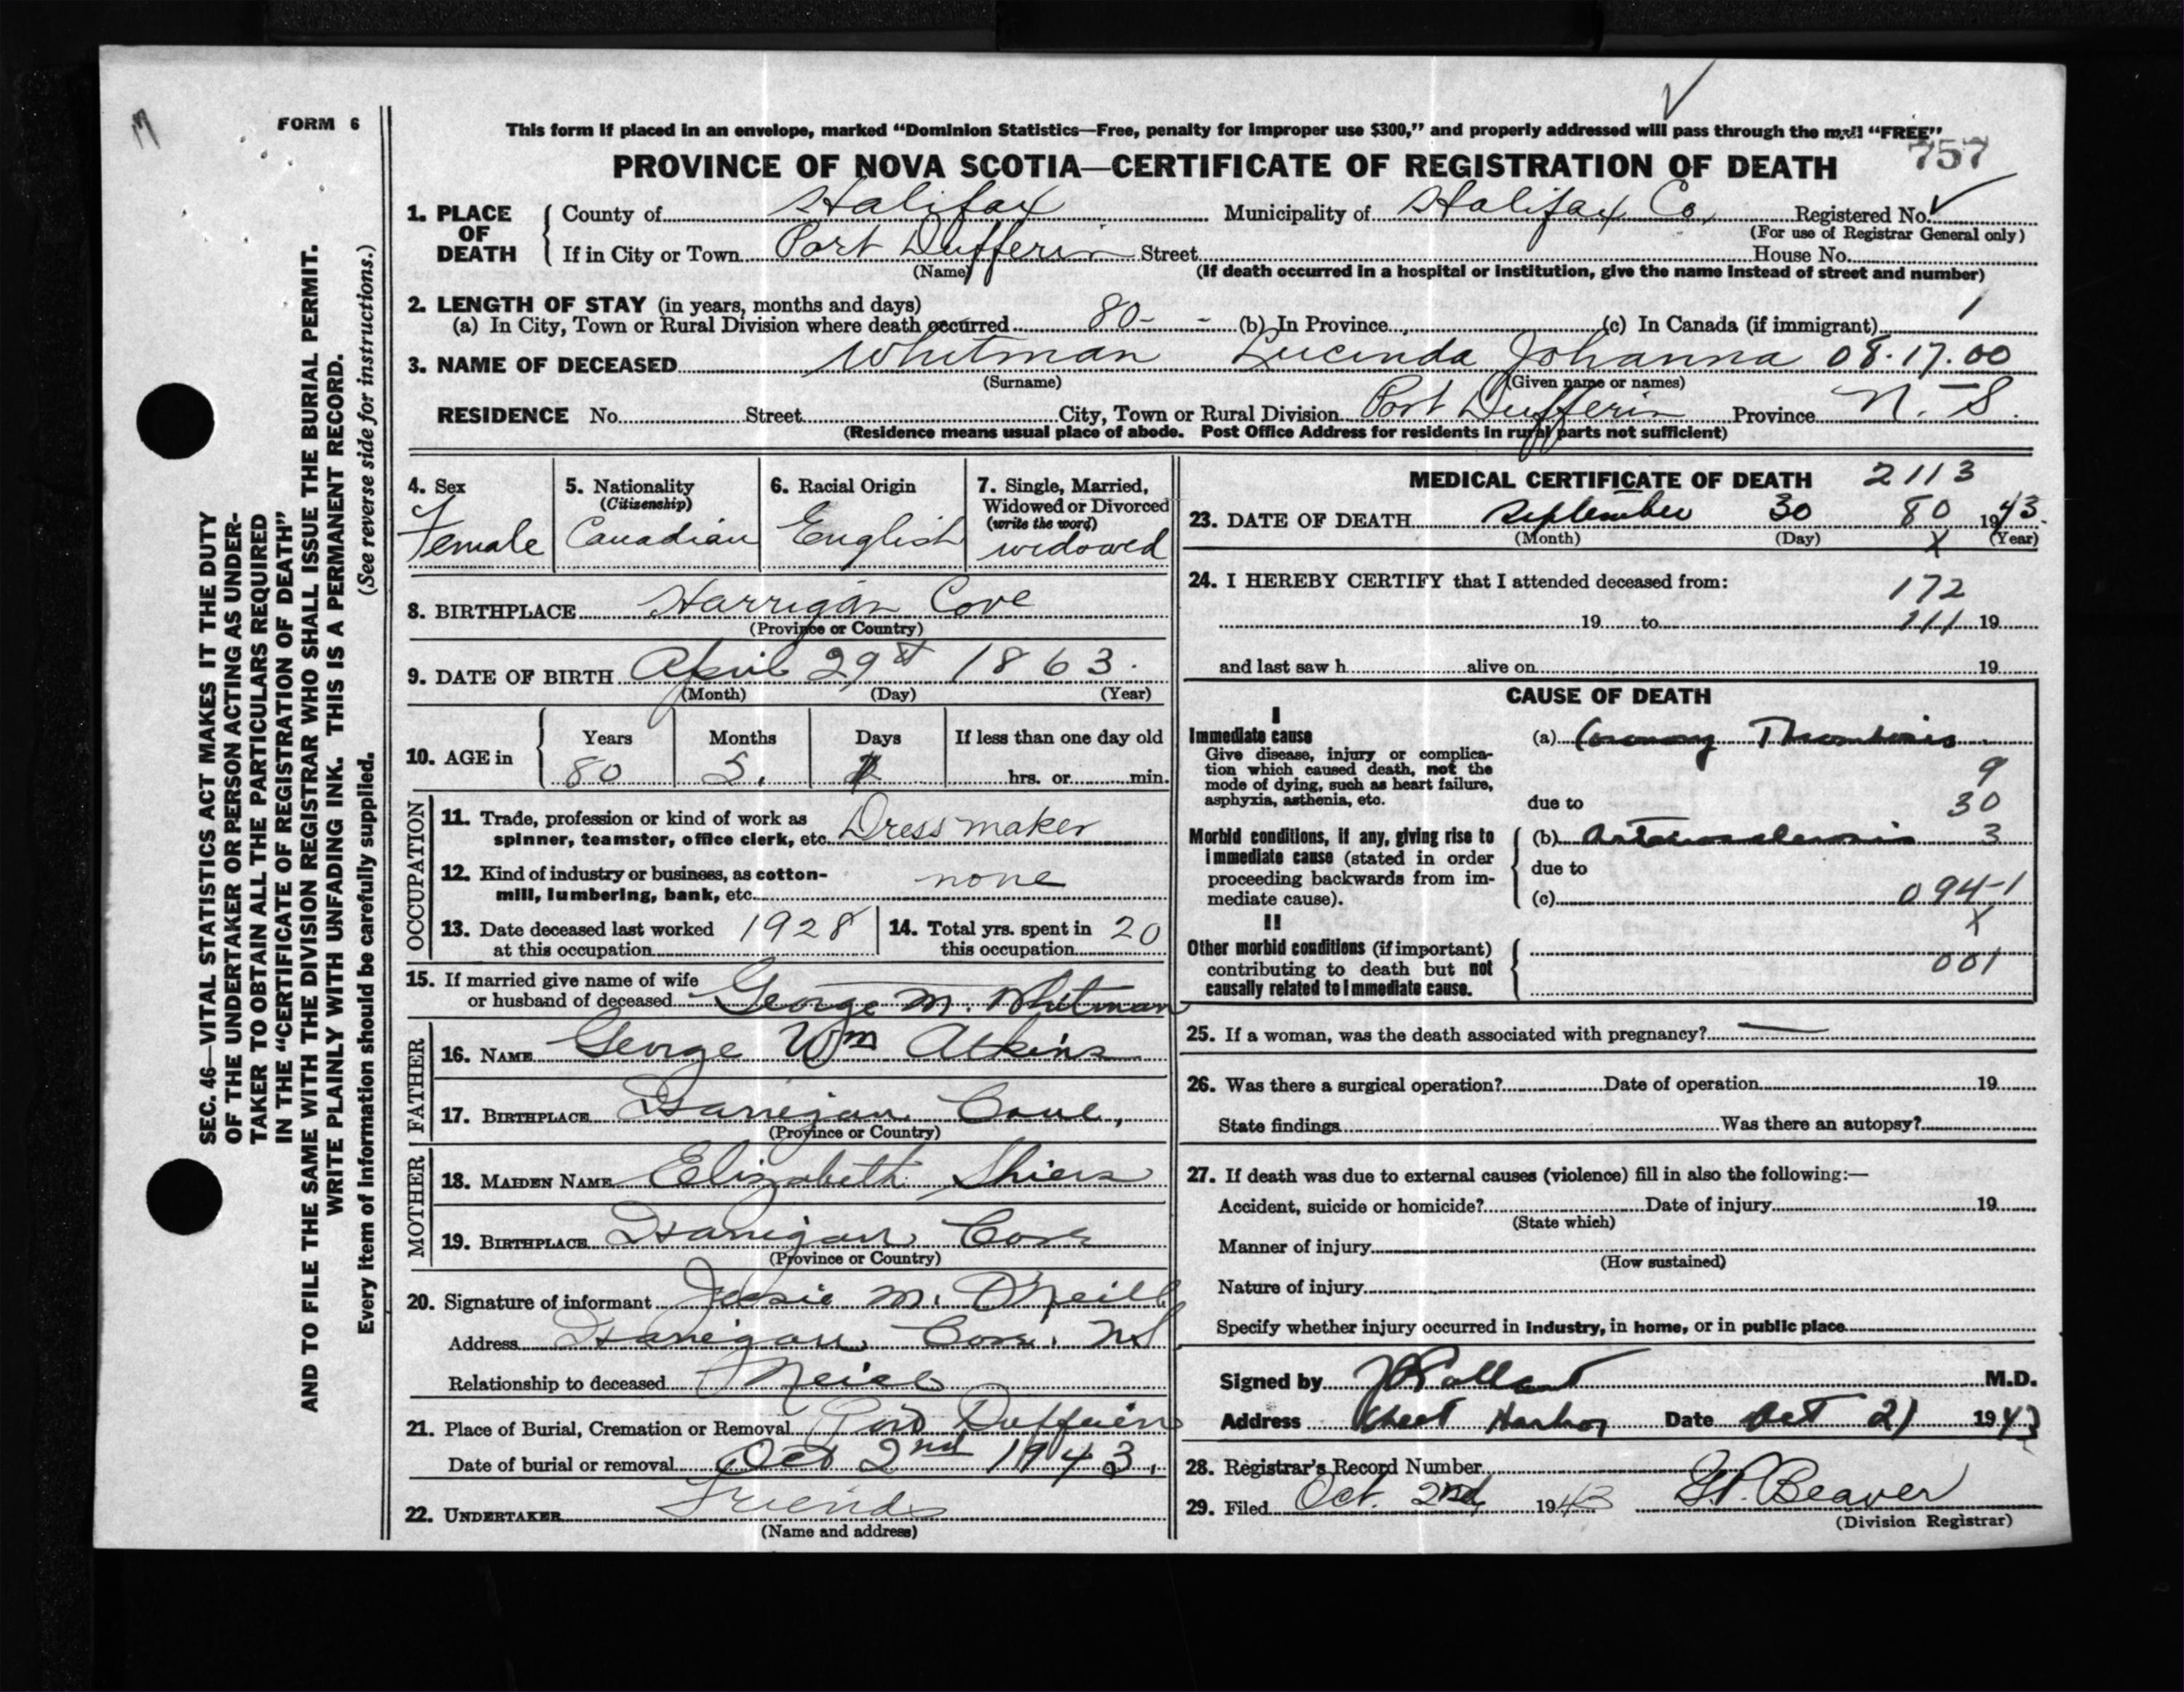 FORM 6
This form if placed in an envelope, marked “Dominion Statistics—Free, penalty for improper use $300,” and properly addressed will pass through the mail “FREE”
757
PROVINCE OF NOVA SCOTIA—CERTIFICATE OF REGISTRATION OF DEATH
1. PLACE OF DEATH
County of Halifax Municipality of Halifax Co. Registered No.
(For use of Registrar General only)
If in City or Town Port Dufferin Street House No.
(Name) (If death occurred in a hospital or institution, give the name instead of street and number)
2. LENGTH OF STAY (in years, months and days) 1
(a) In City, Town or Rural Division where death occurred 80 - - (b) In Province (c) In Canada (if immigrant)
3. NAME OF DECEASED Whitman Lucinda Johanna 08.17.00
(Surname) (Given name or names)
RESIDENCE No. Street City, Town or Rural Division Port Dufferin Province N.S.
(Residence means usual place of abode. Post Office Address for residents in rural parts not sufficient)
4. Sex
Female
5. Nationality
(Citizenship)
Canadian
6. Racial Origin
English
7. Single, Married,
Widowed or Divorced
(write the word)
widowed
8. BIRTHPLACE Harrigan Cove
(Province or Country)
9. DATE OF BIRTH April 29th 1863.
(Month) (Day) (Year)
10. AGE in
Years Months Days If less than one day old
80 5. hrs. or min.
OCCUPATION
11. Trade, profession or kind of work as
spinner, teamster, office clerk, etc. Dressmaker
12. Kind of industry or business, as cotton-
mill, lumbering, bank, etc. none
13. Date deceased last worked 1928
at this occupation
14. Total yrs. spent in 20
this occupation
15. If married give name of wife
or husband of deceased George M. Whitman
FATHER
16. NAME George Wm Atkins
17. BIRTHPLACE Harrigan Cove,
(Province or Country)
MOTHER
18. MAIDEN NAME Elizabeth Shiers
19. BIRTHPLACE Harrigan Cove
(Province or Country)
20. Signature of informant Jessie M. O'Neill
Address Harrigan Cove. NS
Relationship to deceased Neice
21. Place of Burial, Cremation or Removal Port Dufferin
Date of burial or removal Oct 2nd 1943.
22. UNDERTAKER Friends
(Name and address)
MEDICAL CERTIFICATE OF DEATH 2113
23. DATE OF DEATH September 30 80 1943.
(Month) (Day) X (Year)
24. I HEREBY CERTIFY that I attended deceased from:
172
19 to 111 19
and last saw h alive on 19
CAUSE OF DEATH
I
Immediate cause
Give disease, injury or complica-
tion which caused death, not the
mode of dying, such as heart failure,
asphyxia, asthenia, etc.
(a) Coronary Thrombosis
9
due to 30
Morbid conditions, if any, giving rise to
immediate cause (stated in order
proceeding backwards from im-
mediate cause).
(b) Arteriosclerosis 3
due to
(c) 094-1
X
II
Other morbid conditions (if important)
contributing to death but not
causally related to immediate cause.
001
25. If a woman, was the death associated with pregnancy? —
26. Was there a surgical operation? Date of operation 19
State findings Was there an autopsy?
27. If death was due to external causes (violence) fill in also the following:—
Accident, suicide or homicide? Date of injury 19
(State which)
Manner of injury
(How sustained)
Nature of injury
Specify whether injury occurred in industry, in home, or in public place
Signed by M.D.
Address Sheet Harbor Date Oct 21 1943
28. Registrar's Record Number
29. Filed Oct. 2nd, 1943 Beaver
(Division Registrar)
SEC. 46—VITAL STATISTICS ACT MAKES IT THE DUTY
OF THE UNDERTAKER OR PERSON ACTING AS UNDER-
TAKER TO OBTAIN ALL THE PARTICULARS REQUIRED
IN THE “CERTIFICATE OF REGISTRATION OF DEATH”
AND TO FILE THE SAME WITH THE DIVISION REGISTRAR WHO SHALL ISSUE THE BURIAL PERMIT.
WRITE PLAINLY WITH UNFADING INK. THIS IS A PERMANENT RECORD.
Every item of information should be carefully supplied. (See reverse side for instructions.)